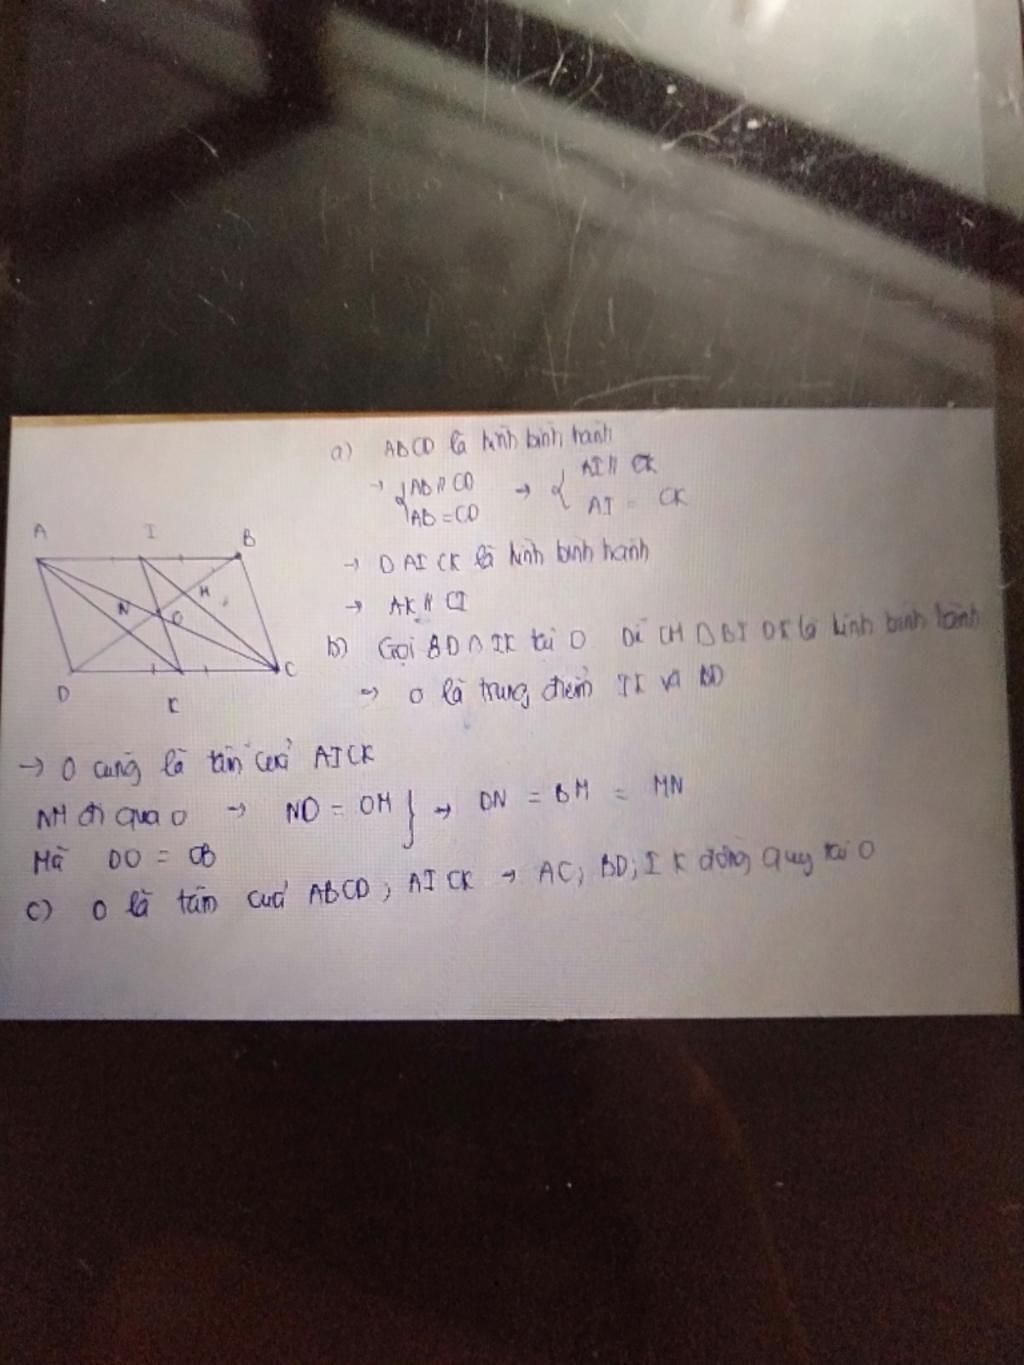 a) ABCD là hình bình hành
→ { AB // CD → { AI // CK
AB = CD AI = CK
→ □ AICK là hình bình hành
→ AK // CI
b) Gọi BD ∩ IK tại O Dễ CM □ BI DK là hình bình hành
→ O là trung điểm IK và BD
A I B
N M
O
D K C
→ O cũng là tâm của AICK
NM đi qua O → NO = OM } → DN = BM = MN
Mà DO = OB
c) O là tâm của ABCD, AICK → AC, BD, IK đồng quy tại O